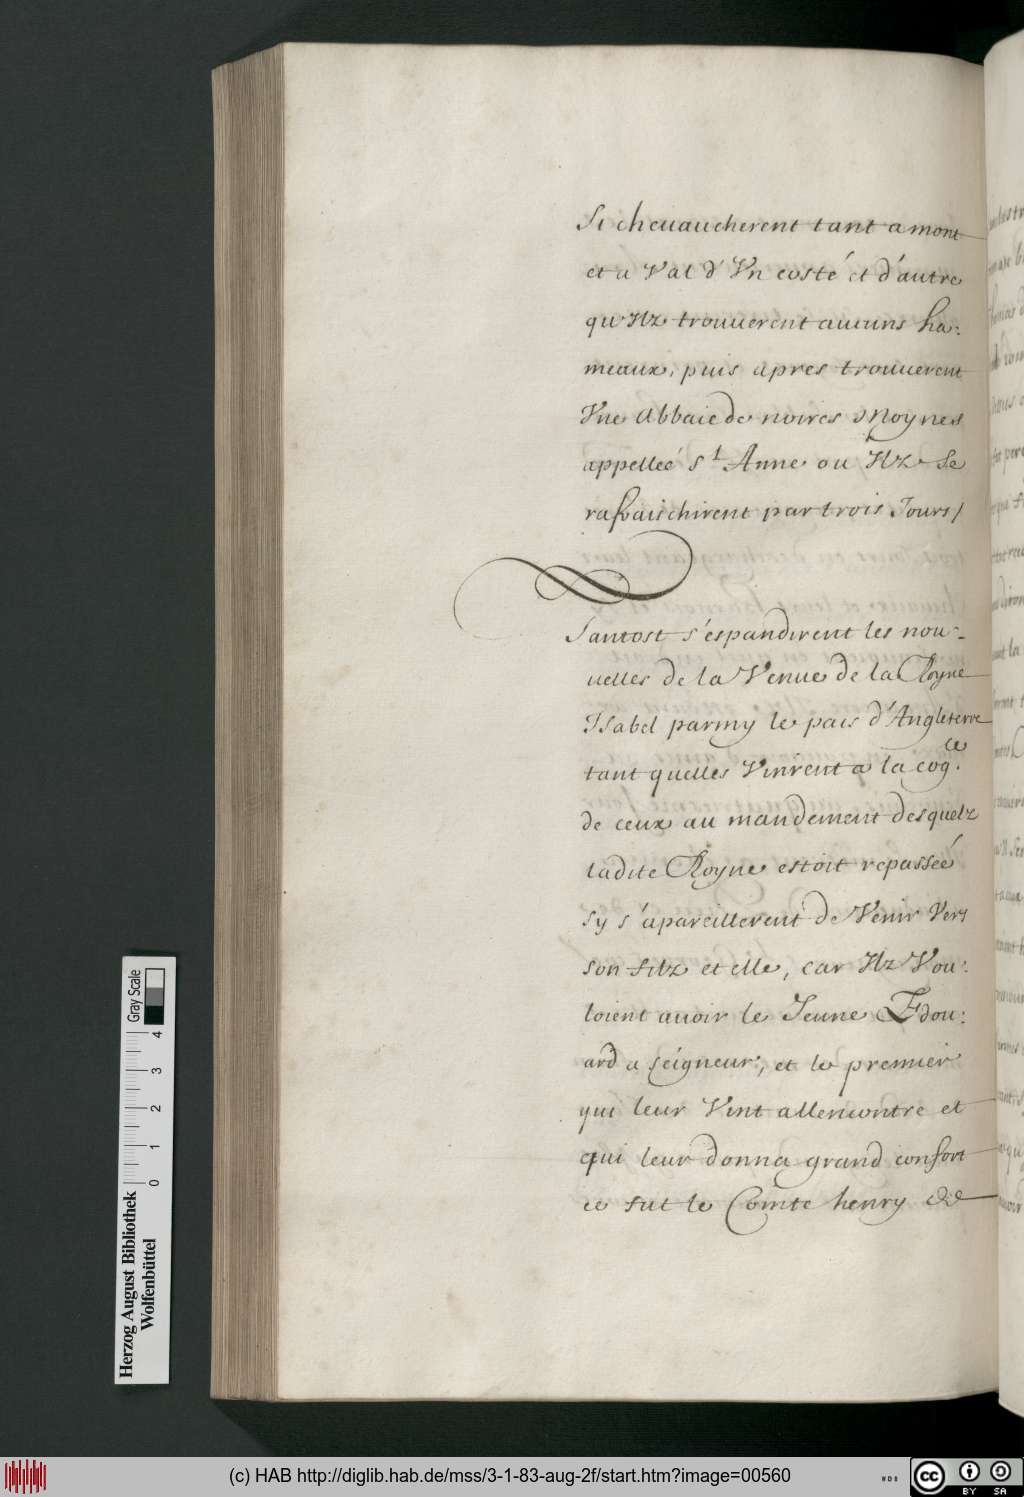 Si cheuaucherent tant a mont
et a Val d'Vn costé et d'autre
qu'Ilz trouuerent aucuns ha:
meaux, puis apres trouuerent
Vne Abbaie de noires Moynes
appelleé St Anne ou Ilz se
rafraischirent par trois Jours/
Tantost s'espandirent les nou:
uelles de la Venue de la Royne
Isabel parmy le pais d'Angleterre
tant quelles Vinrent a la cog.ce
de ceux au mandement desquelz
ladite Royne estoit repasseé
sy s'apareillerent de Venir Vers
son filz et elle, car Ilz Vou:
loient auoir le Jeune Edou:
ard a seigneur, et le premier
qui leur Vint allencontre et
qui leur donna grand confort
ce fut le Comte henry de
Gray Scale
0 1 2 3 4
Herzog August Bibliothek
Wolfenbüttel
(c) HAB http://diglib.hab.de/mss/3-1-83-aug-2f/start.htm?image=00560
WDB
cc BY SA